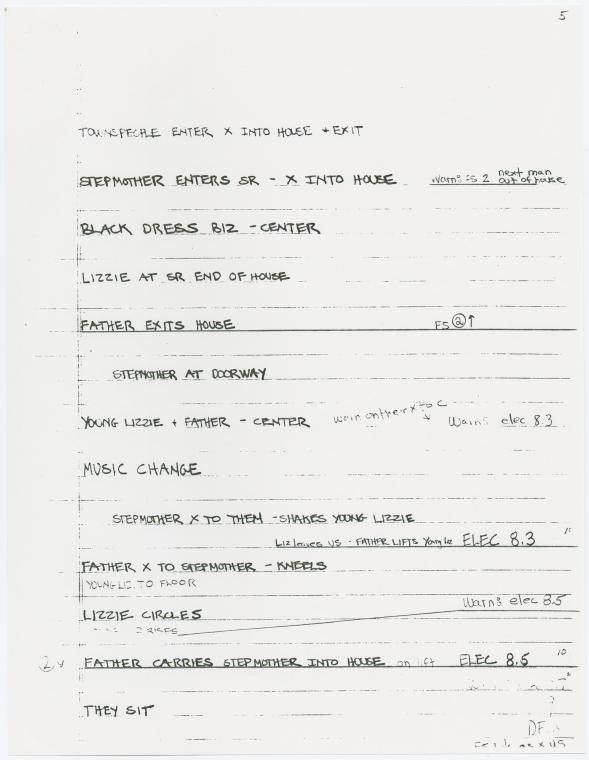 5
TOWNSPEOPLE ENTER X INTO HOUSE + EXIT
STEPMOTHER ENTERS SR - X INTO HOUSE Warn: FS 2 next man out of house
BLACK DRESS BIZ - CENTER
LIZZIE AT SR END OF HOUSE
FATHER EXITS HOUSE FS ② ↑
STEPMOTHER AT DOORWAY
YOUNG LIZZIE + FATHER - CENTER X to C Warn: elec 8.3
MUSIC CHANGE
STEPMOTHER X TO THEM - SHAKES YOUNG LIZZIE
Liz leaves US - FATHER LIFTS Young Liz ELEC 8.3 10
FATHER X TO STEPMOTHER - KNEELS
YOUNG LIZ TO FLOOR
LIZZIE CIRCLES Warn: elec 8.5
RISES
FATHER CARRIES STEPMOTHER INTO HOUSE on lift ELEC 8.5 10
THEY SIT